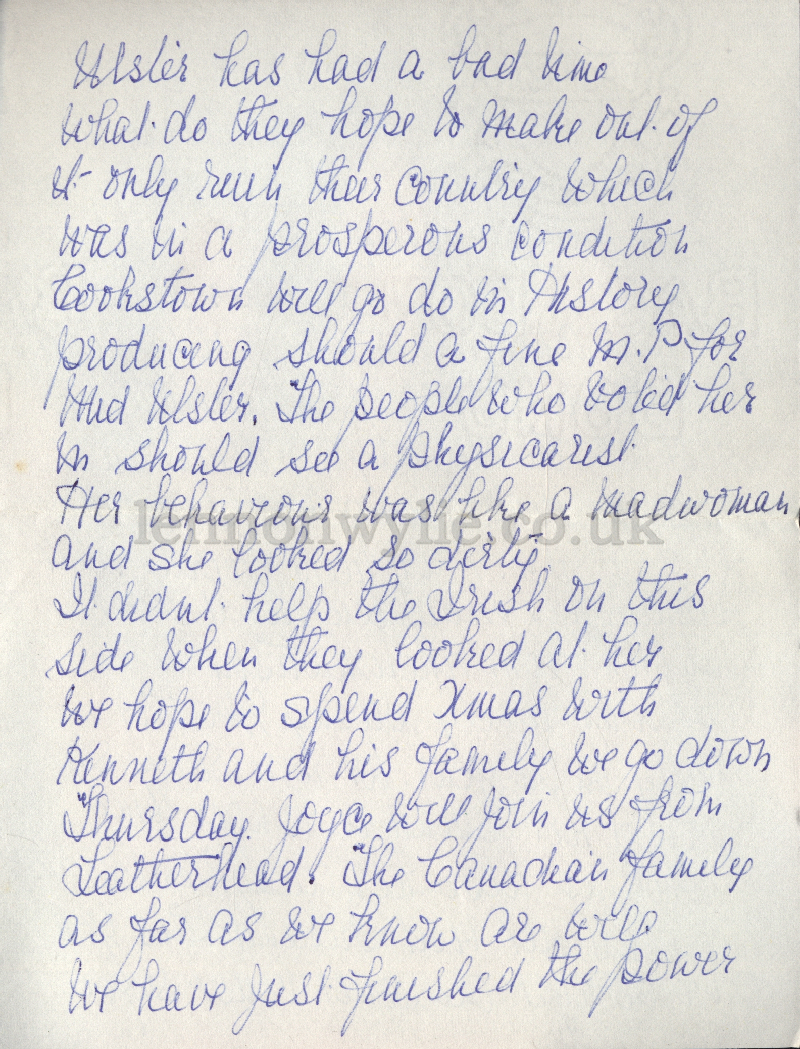 Ulster has had a bad time
what do they hope to make out of
it only ruin their country which
was in a prosperous condition
Cookstown will go do in History
producing should a fine M.P for
Mid Ulster. The people who voted her
in should see a physicarist
Her behaviour was like a madwoman
and she looked so dirty
It didnt help the Irish on this
side when they looked at her
We hope to spend Xmas with
Kenneth and his family we go down
Thursday. Joyce will join us from
Leatherhead. The Canadian family
as far as we know are well
We have just finished the power
lennonwylie.co.uk